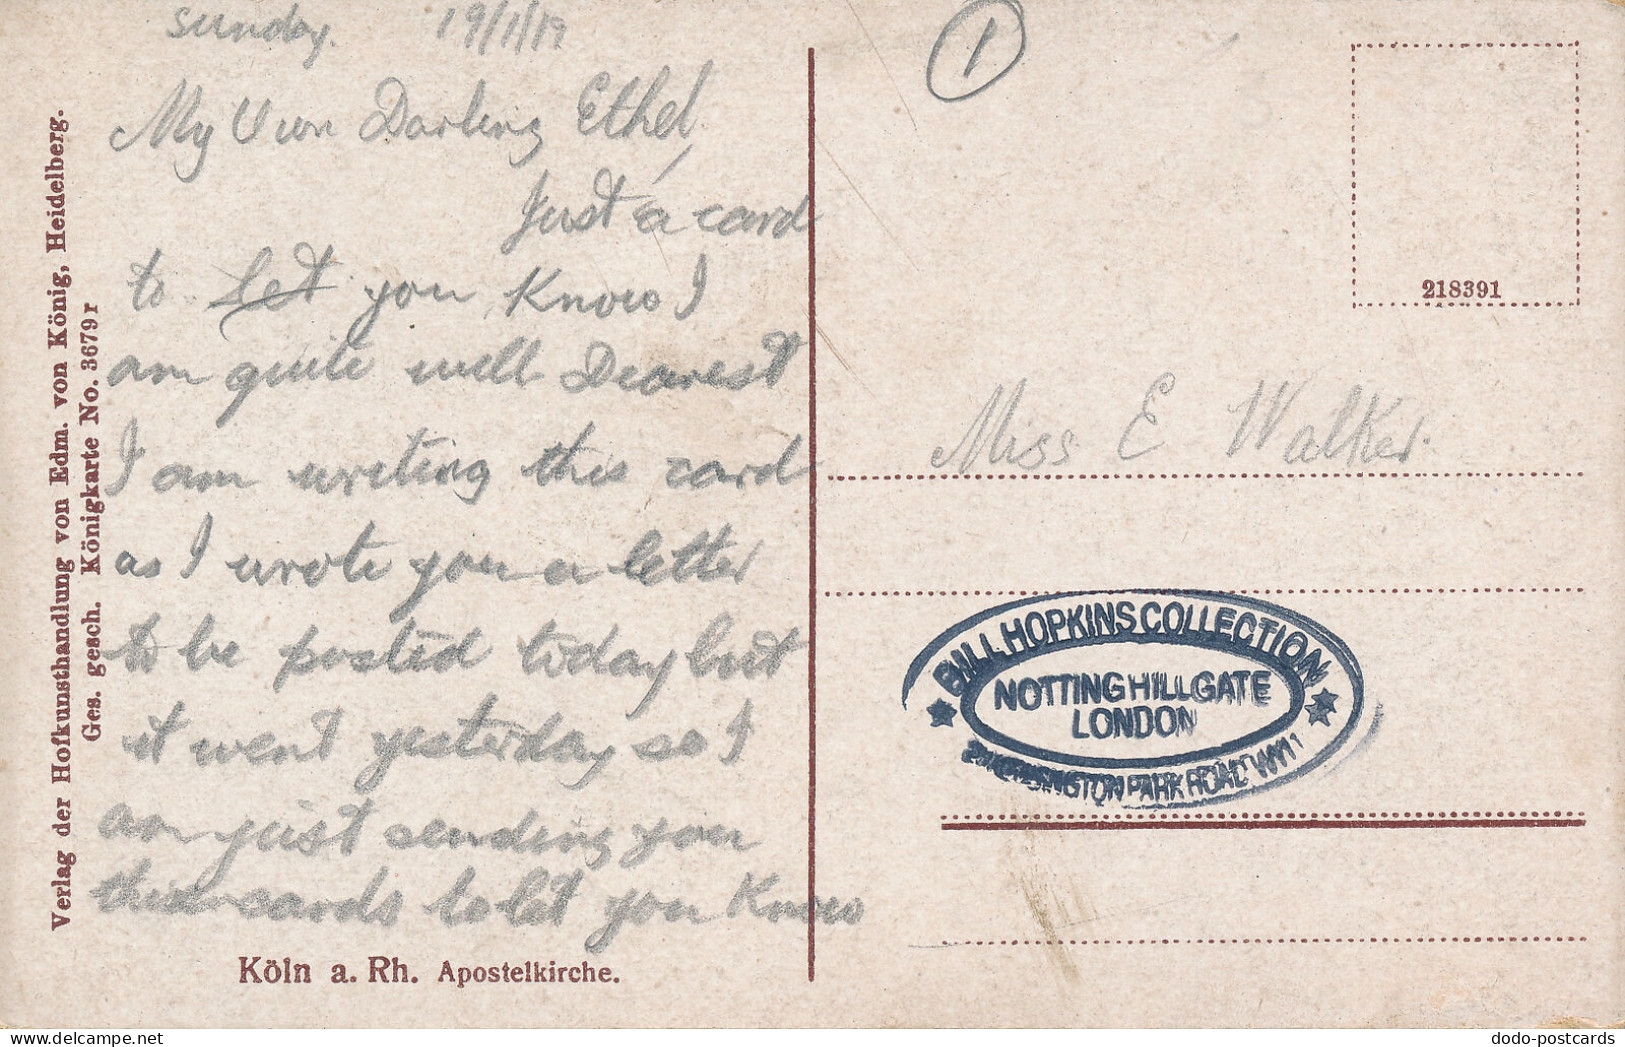 sunday. 19/1/19
My Own Darling Ethel,
Just a card
to let you Know I
am quite well Dearest
I am writing this card
as I wrote you a letter
to be posted today but
it went yesterday so I
am just sending you
cards to let you Know
1
218391
Miss E Walker.
BILL HOPKINS COLLECTION
NOTTING HILL GATE
LONDON
KENSINGTON PARK ROAD W11
Verlag der Hofkunsthandlung von Edm. von König, Heidelberg.
Ges. gesch. Königkarte No. 3679 r
Köln a. Rh. Apostelkirche.
dodo-postcards